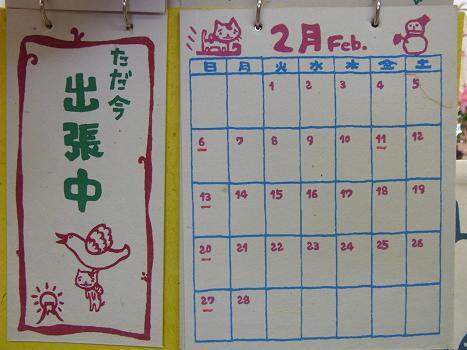 ただ今
出張中
2月 Feb.
日 月 火 水 木 金 土
1 2 3 4 5
6 7 8 9 10 11 12
13 14 15 16 17 18 19
20 21 22 23 24 25 26
27 28